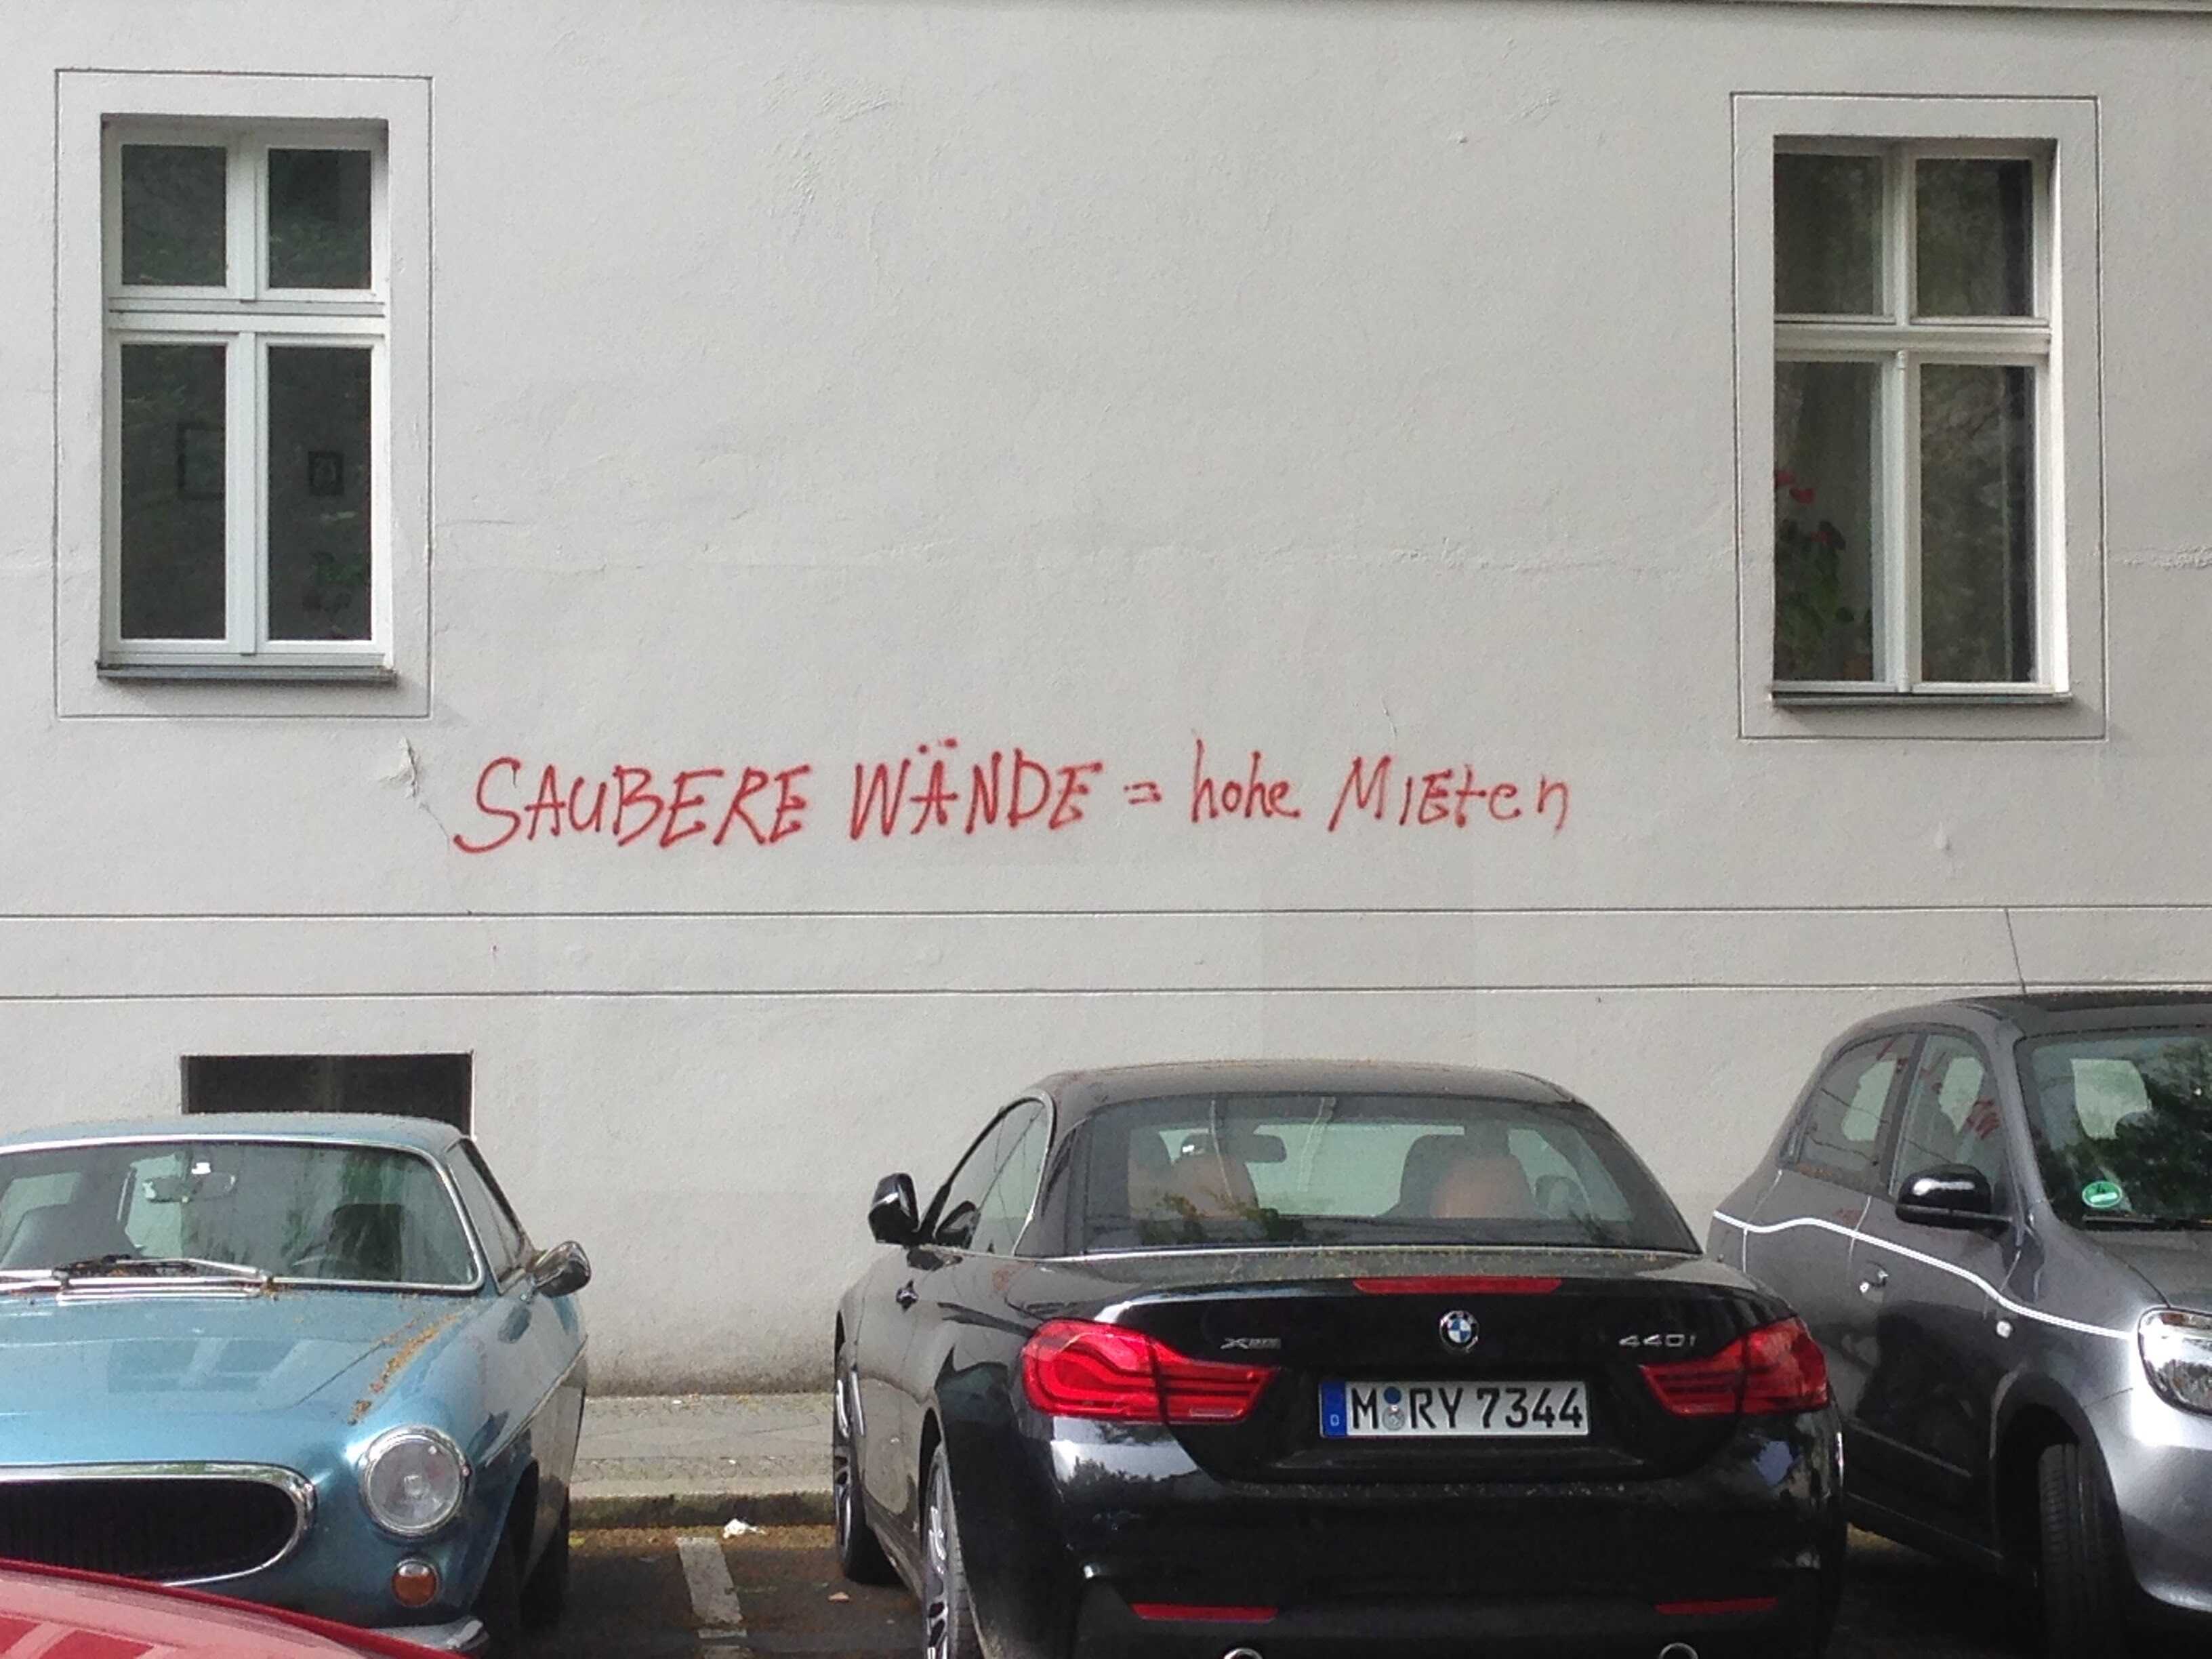 SAUBERE WÄNDE = hohe MIEten
xDRIVE
440i
M RY 7344
D